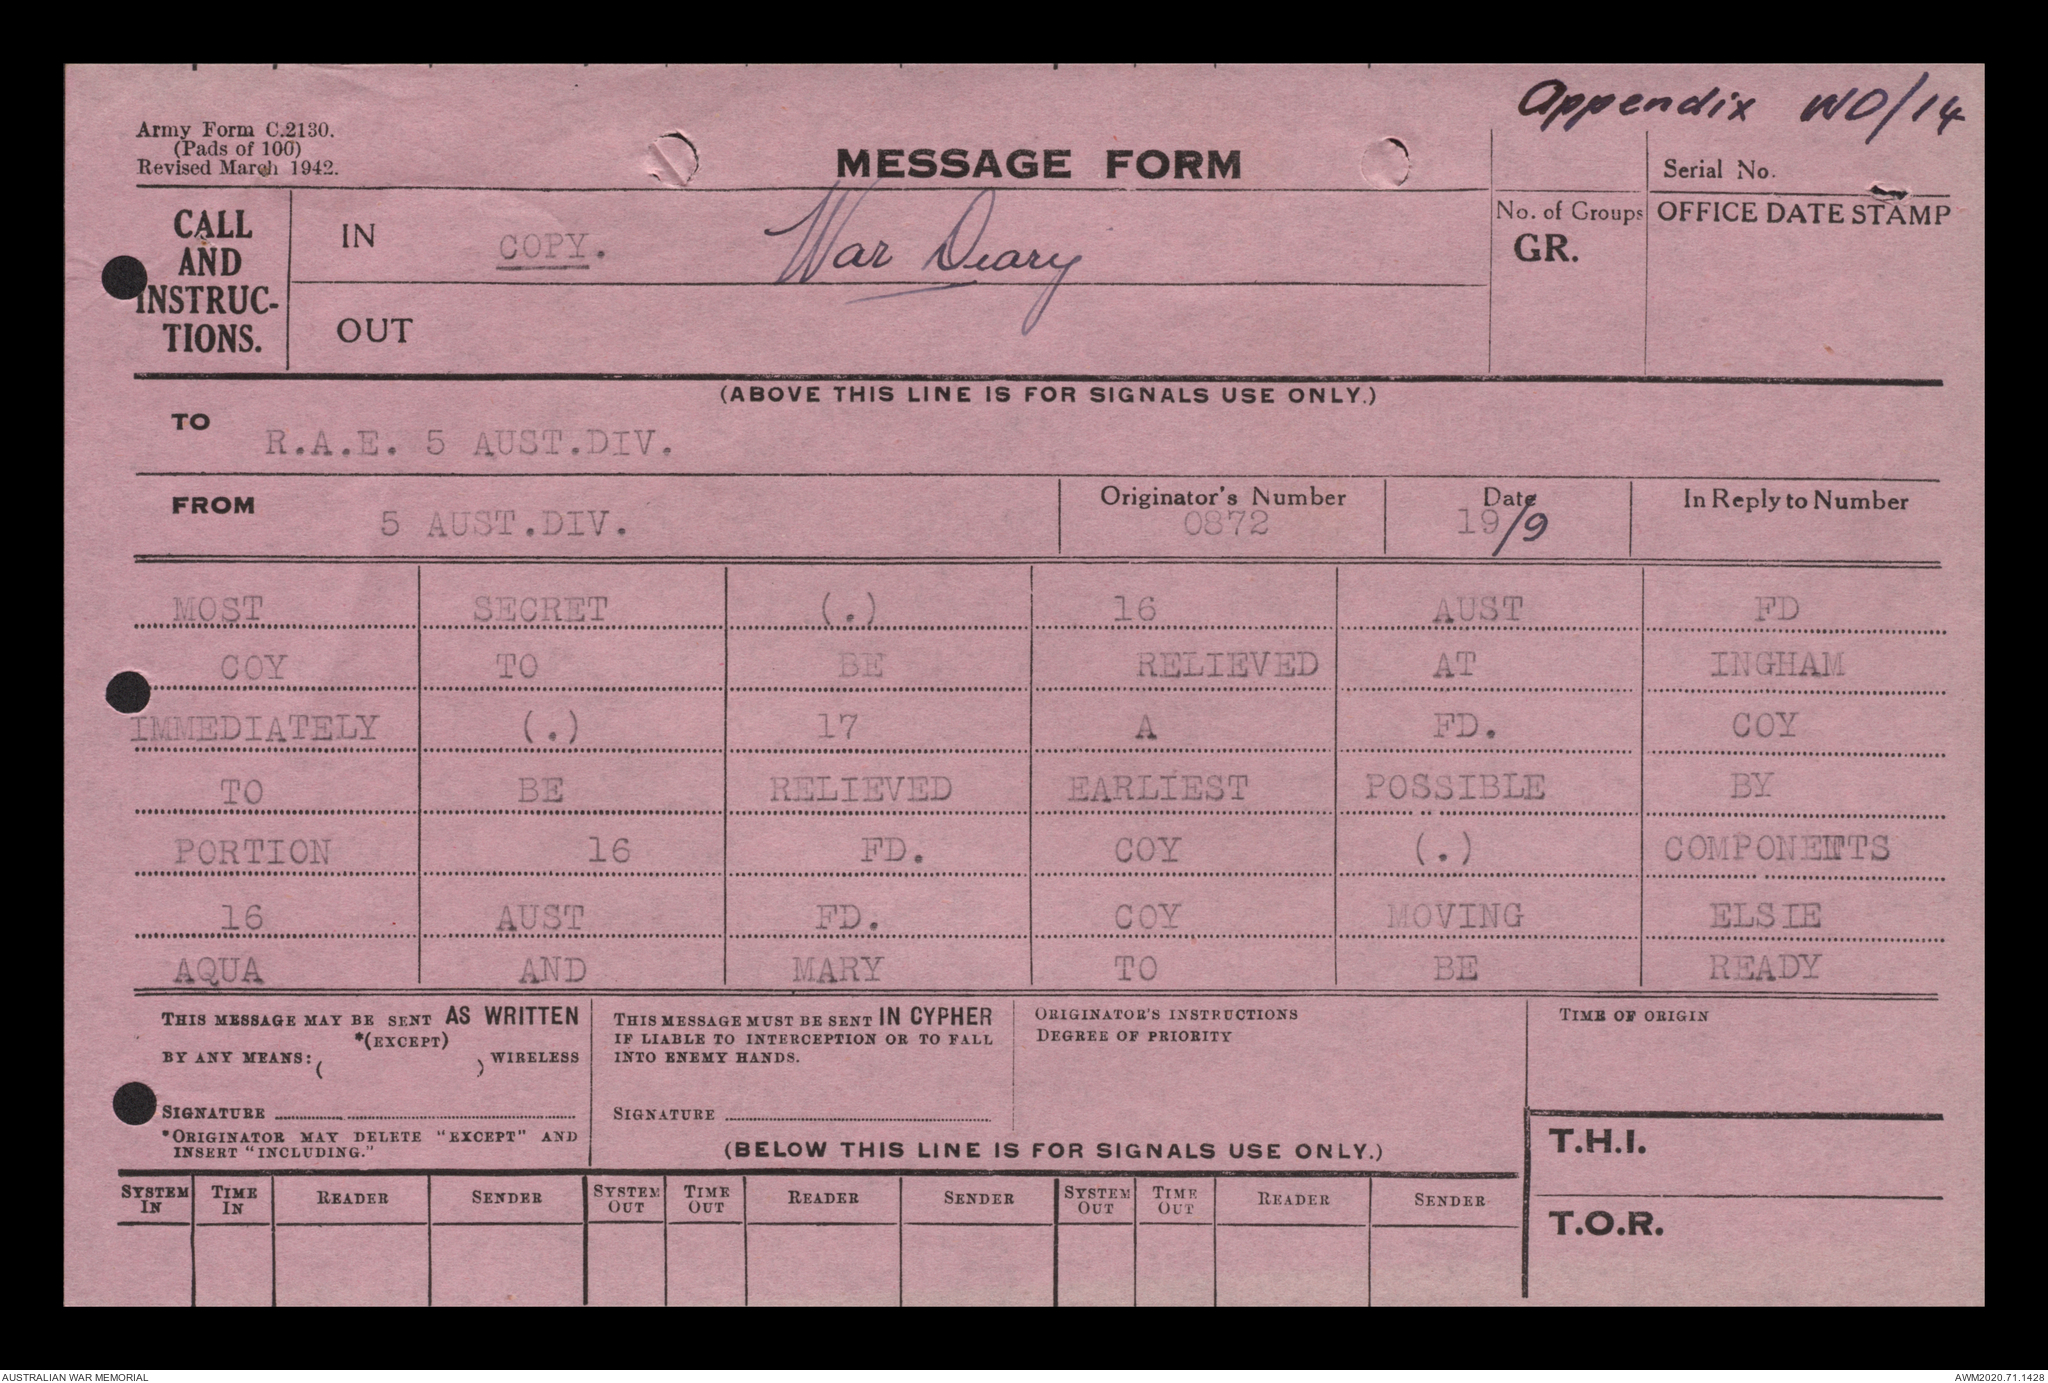 Appendix WD/14
Army Form C.2130.
(Pads of 100)
Revised March 1942.
MESSAGE FORM
Serial No.
CALL
AND
INSTRUC-
TIONS.
IN COPY. War Diary
OUT
No. of Groups
GR.
OFFICE DATE STAMP
(ABOVE THIS LINE IS FOR SIGNALS USE ONLY.)
TO R.A.E. 5 AUST.DIV.
FROM 5 AUST.DIV.
Originator's Number
0872
Date
19/9
In Reply to Number
MOST SECRET (.) 16 AUST FD
COY TO BE RELIEVED AT INGHAM
IMMEDIATELY (.) 17 A FD. COY
TO BE RELIEVED EARLIEST POSSIBLE BY
PORTION 16 FD. COY (.) COMPONENTS
16 AUST FD. COY MOVING ELSIE
AQUA AND MARY TO BE READY
THIS MESSAGE MAY BE SENT AS WRITTEN
*(EXCEPT)
BY ANY MEANS: ( ) WIRELESS
SIGNATURE
*ORIGINATOR MAY DELETE "EXCEPT" AND
INSERT "INCLUDING."
THIS MESSAGE MUST BE SENT IN CYPHER
IF LIABLE TO INTERCEPTION OR TO FALL
INTO ENEMY HANDS.
SIGNATURE
ORIGINATOR'S INSTRUCTIONS
DEGREE OF PRIORITY
TIME OF ORIGIN
(BELOW THIS LINE IS FOR SIGNALS USE ONLY.)
T.H.I.
T.O.R.
SYSTEM IN TIME IN READER SENDER SYSTEM OUT TIME OUT READER SENDER SYSTEM OUT TIME OUT READER SENDER
AUSTRALIAN WAR MEMORIAL AWM2020.71.1428